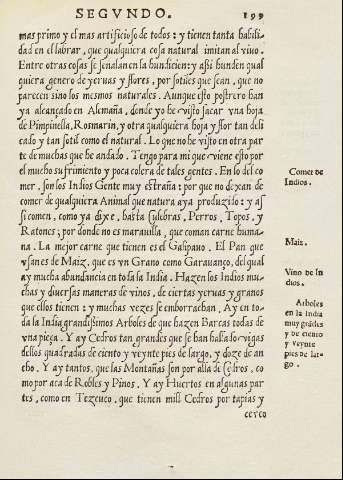 SEGVNDO. 199
mas primo y el mas artificioso de todos: y tienen tanta habili-
dad en el labrar, que qualquiera cosa natural imitan al viuo.
Entre otras cosas se señalan en la hundicion: y aßi hunden qual
quiera genero de yeruas y flores, por sotiles que sean, que no
parecen sino los mesmos naturales. Aunque esto postrero han
ya alcançado en Alemaña, donde yo he visto sacar vna hoja
de Pimpinella, Rosmarin, y otra qualquiera hoja y flor tan deli
cado y tan sotil como el natural. Lo que no he visto en otra par
te de muchas que he andado. Tengo para mi que viene esto por
el mucho sufrimiento y poca colera de tales gentes. En lo del co
mer, son los Indios Gente muy estraña: por que no dexan de
comer de qualquiera Animal que natura aya produzido: y as
si comen, como ya dixe, hasta Culebras, Perros, Topos, y
Ratones; por donde no es marauilla, que coman carne huma-
na. La mejor carne que tienen es el Galipauo. El Pan que
vsan es de Maiz, que es vn Grano como Garauanço, del qual
ay mucha abundancia en toda la India. Hazen los Indios mu-
chas y diuersas maneras de vinos, de ciertas yeruas y granos
que ellos tienen: y muchas vezes se emborrachan. Ay en to-
da la India grandißimos Arboles de que hazen Barcas todas de
vna pieça. Y ay Cedros tan grandes que se han hallado vigas
dellos quadradas de ciento y veynte pies de largo, y doze de an
cho. Y ay tantos, que las Montañas son por alla de Cedros, co
mo por aca de Robles y Pinos. Y ay Huertos en algunas par
tes, como en Tezcuco, que tienen mill Cedros por tapias y
cerco
Comer de
Indios.
Maiz.
Vino de In
dios.
Arboles
en la India
muy grãdes
y de ciento
y veynte
pies de lar-
go.